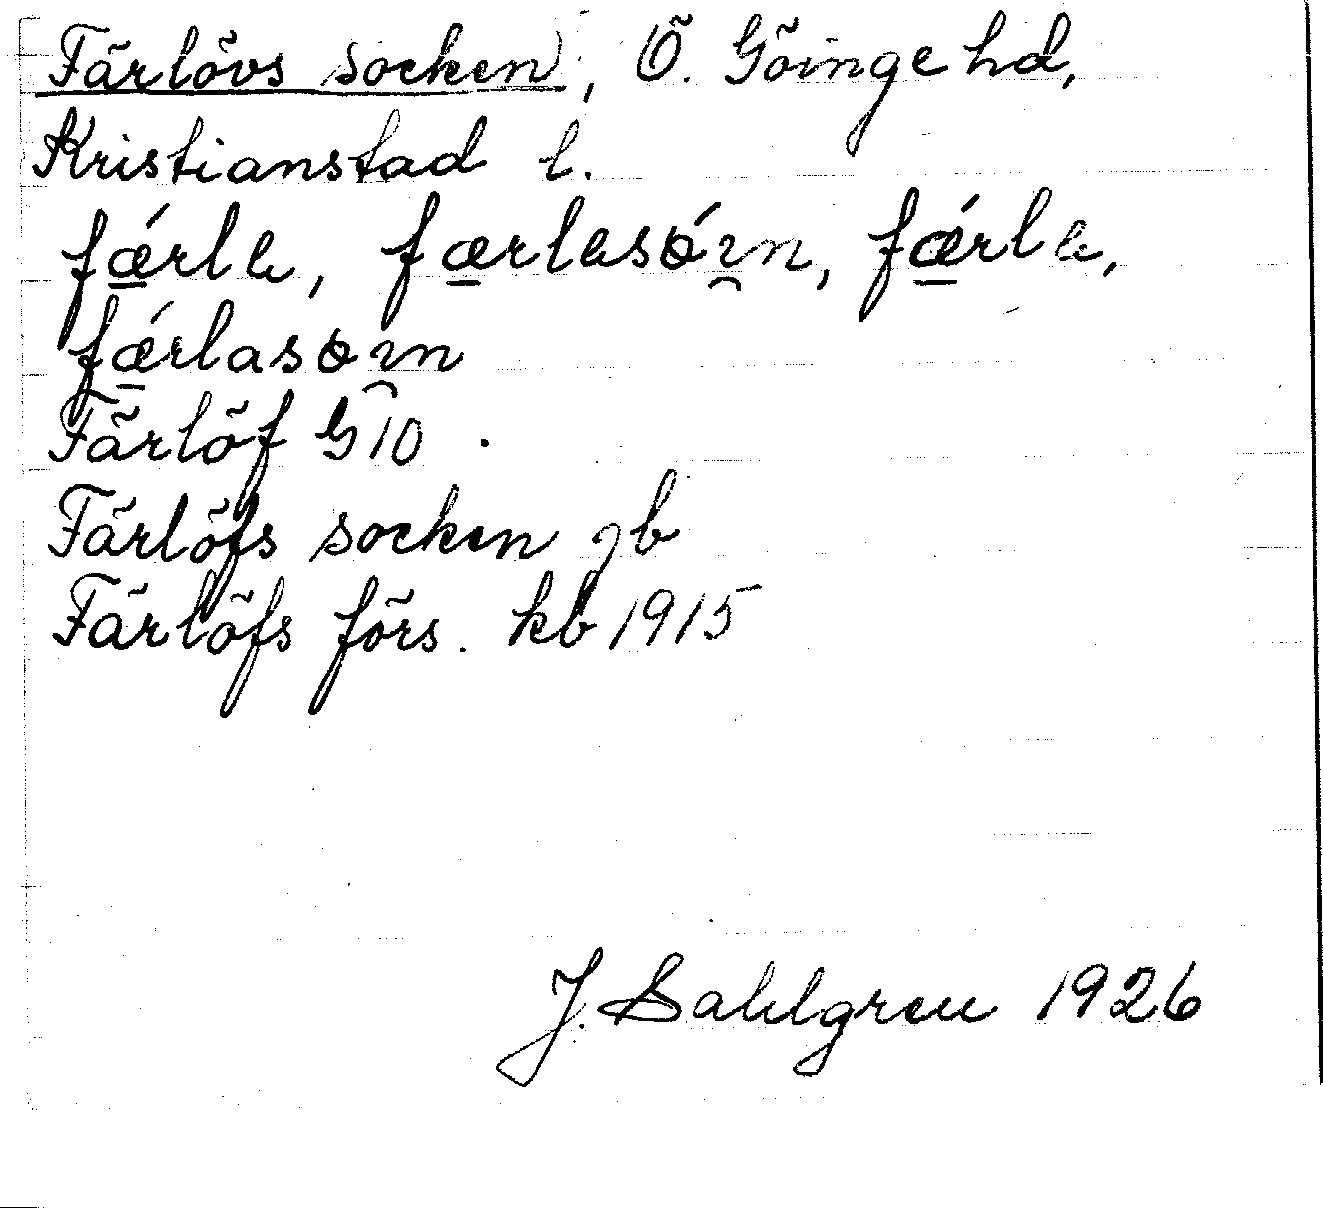 Färlövs socken, Ö. Göinge hd,
Kristianstad l.
fǽrla, færlasǿın, fǽrla,
fǽrlasøın
Färlöf G10
Färlöfs socken jb
Färlöfs förs. kb 1915
J. Sahlgren 1926